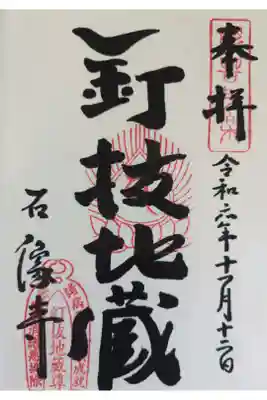 奉拝
令和六年十一月十二日
釘抜地蔵
石像寺
釘抜地蔵尊